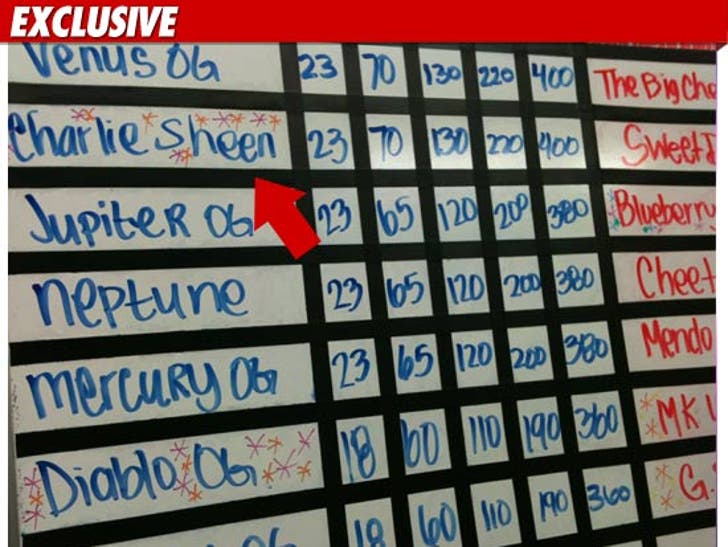 EXCLUSIVE
Venus OG 23 70 130 220 400 The Big Che
Charlie Sheen 23 70 130 220 400 Sweet J
Jupiter OG 23 65 120 200 380 Blueberry
Neptune 23 65 120 200 380 Cheet
Mercury OG 23 65 120 200 380 Mendo
Diablo OG 18 60 110 190 360 MK
OG 18 60 110 190 360 G.